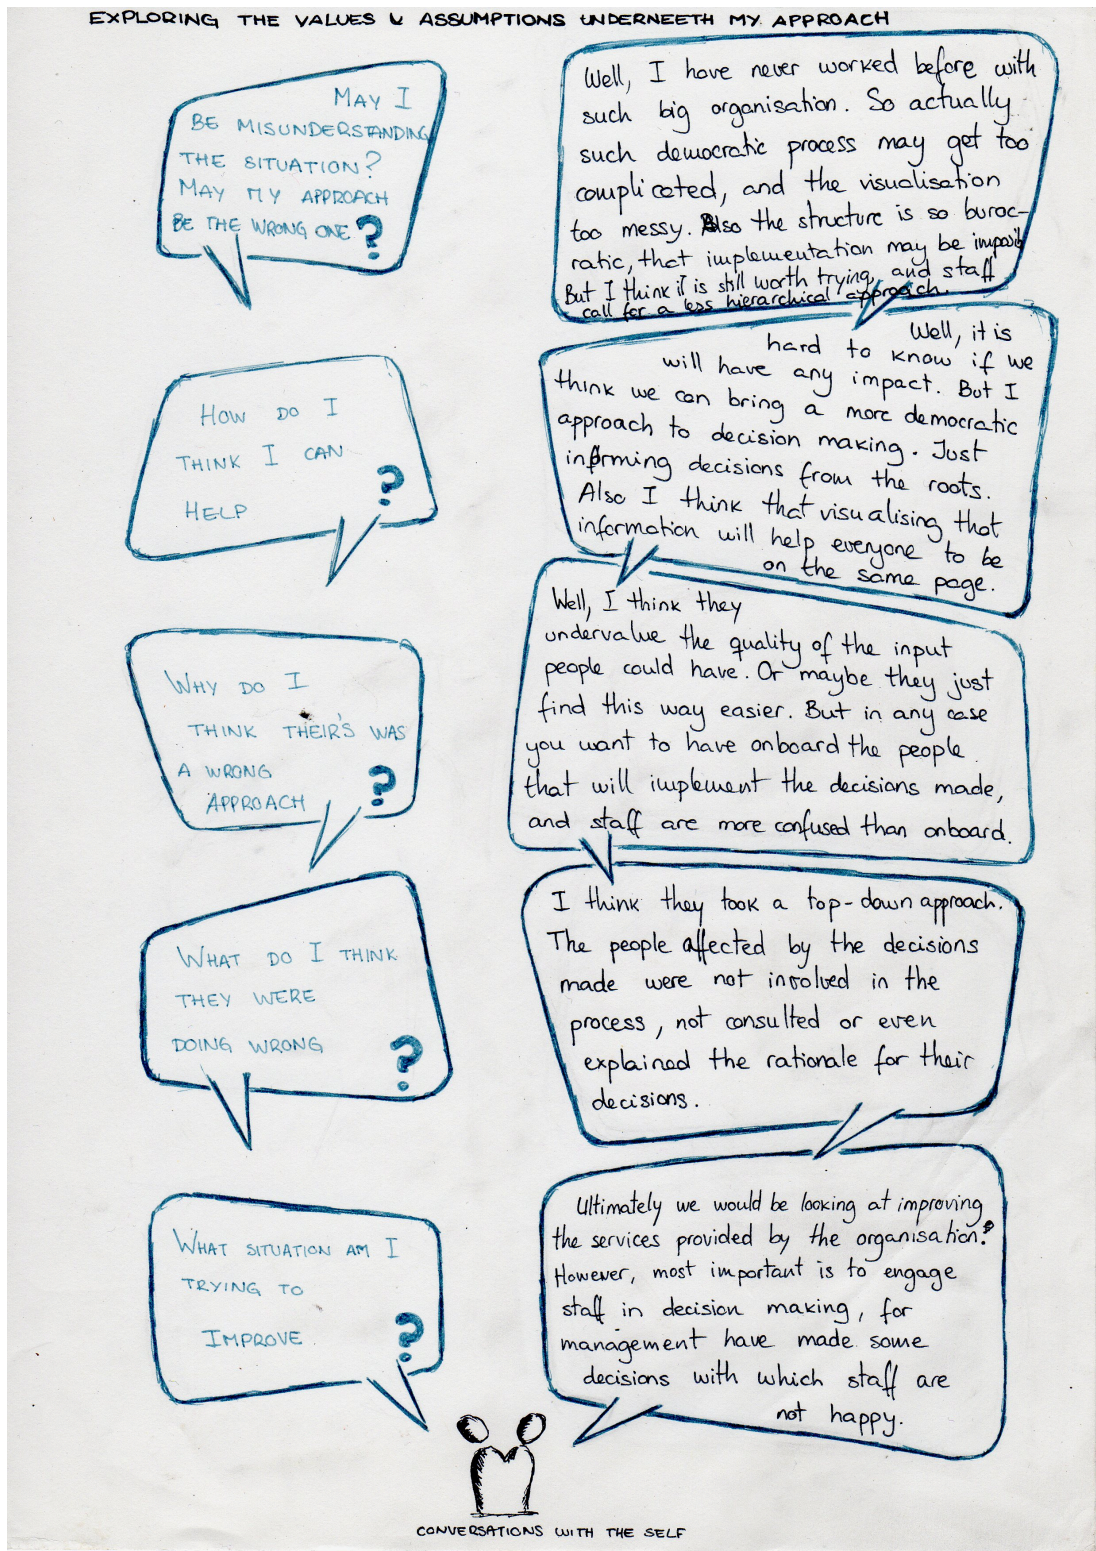 EXPLORING THE VALUES & ASSUMPTIONS UNDERNEETH MY APPROACH
MAY I
BE MISUNDERSTANDING
THE SITUATION?
MAY MY APPROACH
BE THE WRONG ONE ?
Well, I have never worked before with
such big organisation. So actually
such democratic process may get too
complicated, and the visualisation
too messy. Also the structure is so buroc-
ratic, that implementation may be
But I think it is still worth trying, and staff
call for a less hierarchical approach.
HOW DO I
THINK I CAN
HELP ?
Well, it is
hard to know if we
will have any impact. But I
think we can bring a more democratic
approach to decision making. Just
informing decisions from the roots.
Also I think that visualising that
information will help everyone to be
on the same page.
WHY DO I
THINK THEIR'S WAS
A WRONG
APPROACH ?
Well, I think they
undervalue the quality of the input
people could have. Or maybe they just
find this way easier. But in any case
you want to have onboard the people
that will implement the decisions made,
and staff are more confused than onboard.
WHAT DO I THINK
THEY WERE
DOING WRONG ?
I think they took a top-down approach.
The people affected by the decisions
made were not involved in the
process, not consulted or even
explained the rationale for their
decisions.
WHAT SITUATION AM I
TRYING TO
IMPROVE ?
Ultimately we would be looking at improving
the services provided by the organisation.
However, most important is to engage
staff in decision making, for
management have made some
decisions with which staff are
not happy.
CONVERSATIONS WITH THE SELF